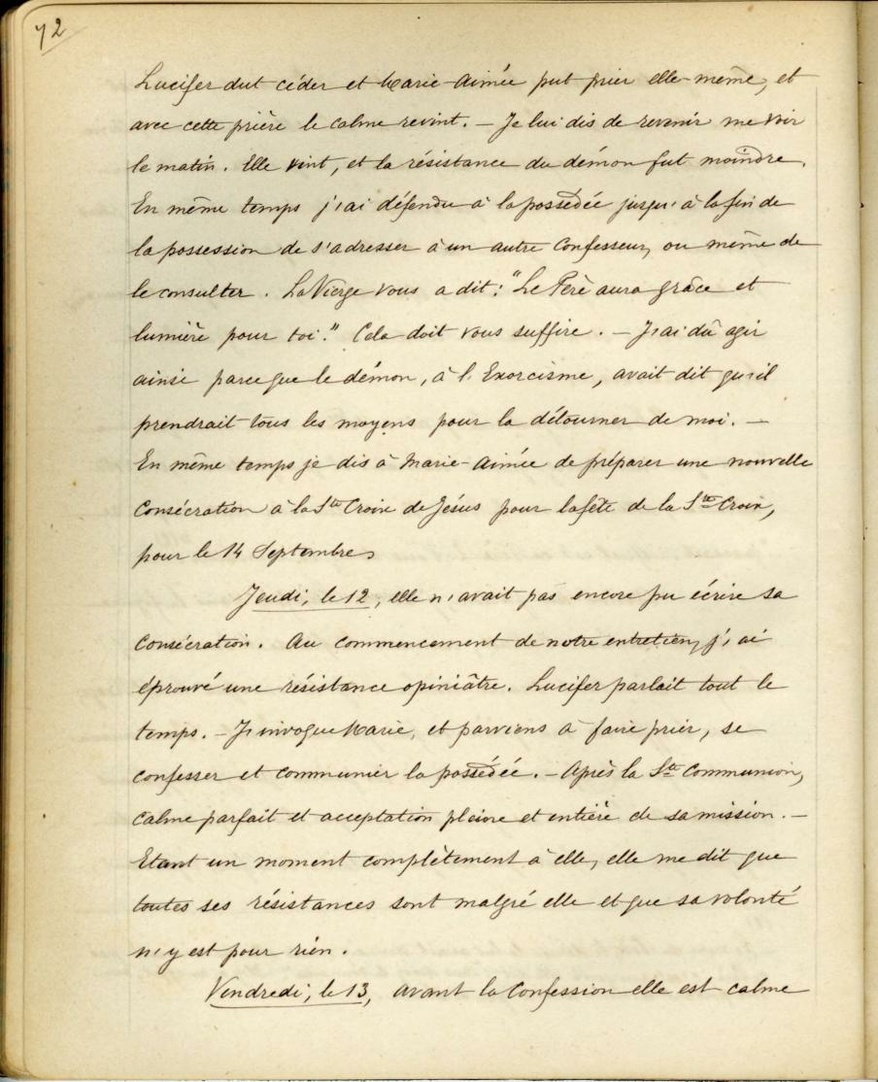 72
Lucifer dut céder et Marie-Aimée put prier elle-même, et
avec cette prière le calme revint. — Je lui dis de revenir me voir
le matin. Elle vint, et la résistance du démon fut moindre.
En même temps j'ai défendu à la possédée jusqu'à la fin de
la possession de s'adresser à un autre Confesseur, ou même de
le consulter. La Vierge vous a dit: "Le Père aura grâce et
lumière pour toi." Cela doit vous suffire. — J'ai dû agir
ainsi parce que le démon, à l'Exorcisme, avait dit qu'il
prendrait tous les moyens pour la détourner de moi. —
En même temps je dis à Marie-Aimée de préparer une nouvelle
Consécration à la Ste Croix de Jésus pour la fête de la Ste Croix,
pour le 14 Septembre
Jeudi, le 12, elle n'avait pas encore pu écrire sa
Consécration. Au commencement de notre entretien, j'ai
éprouvé une résistance opiniâtre. Lucifer parlait tout le
temps. — J'invoque Marie, et parviens à faire prier, se
confesser et communier la possédée. — Après la Ste Communion,
calme parfait et acceptation pleine et entière de sa mission. —
Etant un moment complètement à elle, elle me dit que
toutes ses résistances sont malgré elle et que sa volonté
n'y est pour rien.
Vendredi, le 13, avant la Confession elle est calme